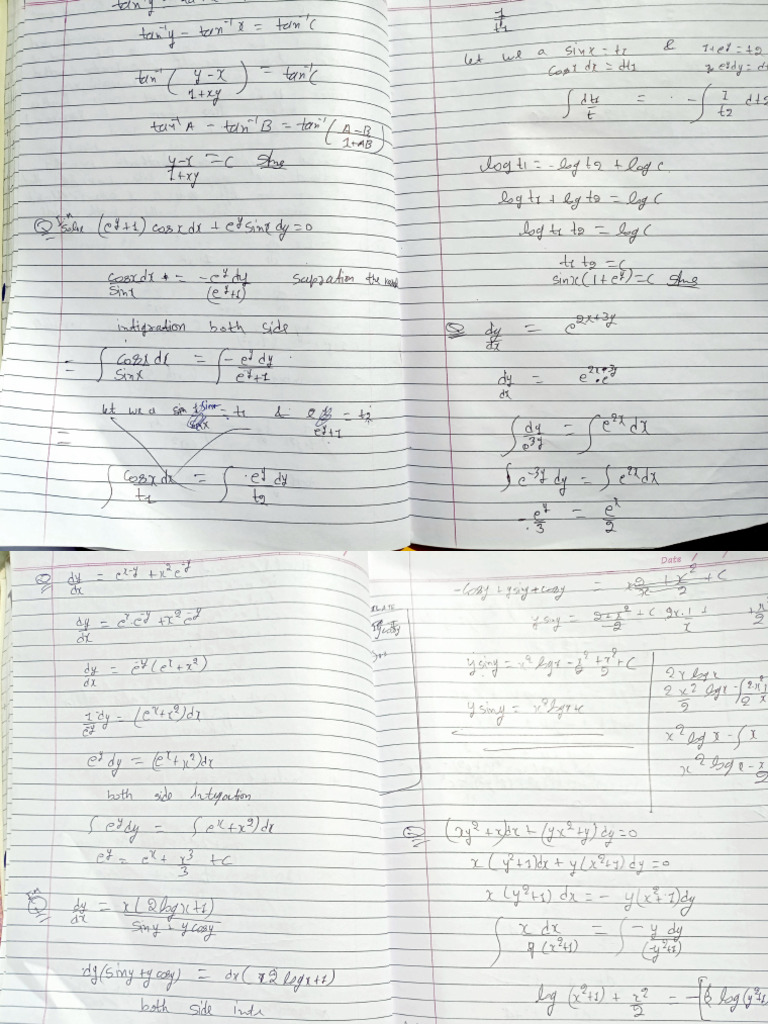 tan⁻¹y - tan⁻¹x = tan⁻¹C
tan⁻¹ ( y-x / 1+xy ) = tan⁻¹C
tan⁻¹A - tan⁻¹B = tan⁻¹ ( A-B / 1+AB )
y-x / 1+xy = C
Q Solve (e^y+1) cosx dx + e^y sinx dy = 0
cosx dx / sinx = -e^y dy / (e^y+1) sapration the
intigration both side
= ∫ cosx dx / sinx = ∫ -e^y dy / e^y+1
let we a sin = t1 & = t2
e^y+1
=
∫ cosx dx / t1 = ∫ e^y dy / t2
1 / t1
let we a sinx = t1 & 1+e^y = t2
cosx dx = dt1 e^y dy = d
∫ dt1 / t = - ∫ 1 / t2 dt2
log t1 = -log t2 + log C
log t1 + log t2 = log C
log t1 t2 = log C
t1 t2 = C
sinx (1+e^y) = C
Q dy/dx = e^2x+3y
dy/dx = e^2x · e^3y
∫ dy / e^3y = ∫ e^2x dx
∫ e^-3y dy = ∫ e^2x dx
- e^y / 3 = e^x / 2
Q dy/dx = e^x-y + x²e^-y
dy/dx = e^x·e^-y + x²e^-y
dy/dx = e^-y (e^x + x²)
1/e^-y dy = (e^x + x²) dx
e^y dy = (e^x + x²) dx
both side Intigration
∫ e^y dy = ∫ (e^x + x²) dx
e^y = e^x + x³/3 + C
Q dy/dx = x (2 log x + 1) / siny + y cosy
dy (siny + y cosy) = dx (x 2 log x + 1)
both side
Date
-cosy + y siny + cosy = + x²/2 + C
y siny = + C 2x·1/x
y siny = x² log x - x²/2 + x²/2 + C
y siny = x² log x + c
2x log x
2 x²/2 log x - ∫
x² log x - ∫ x
x² log x - x/2
Q (xy² + x) dx + (yx² + y) dy = 0
x (y²+1) dx + y (x²+1) dy = 0
x (y²+1) dx = - y (x²+1) dy
∫ x dx / (x²+1) = ∫ -y dy / (y²+1)
log (x²+1) + x²/2 = - log (y²+1